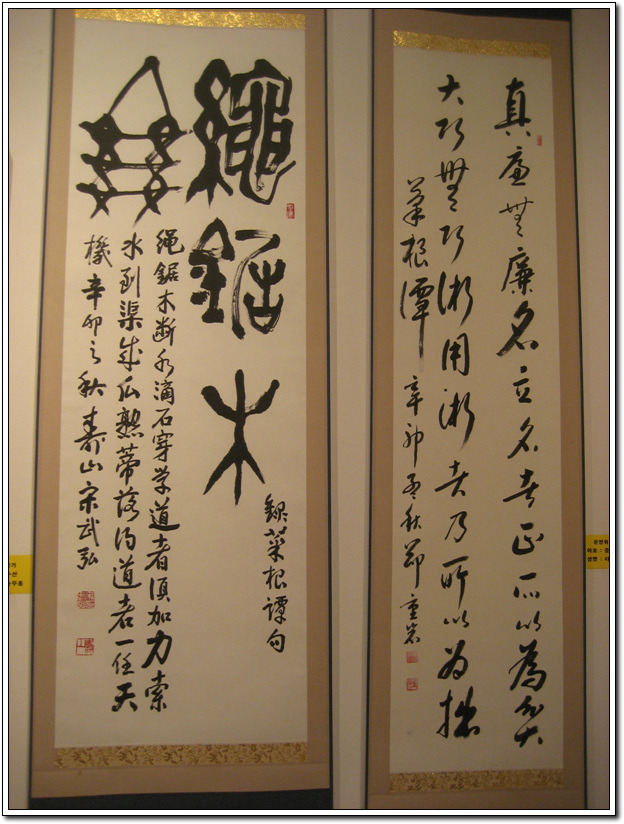 真廉無廉名立名者正所以為貪
大巧無巧術用術者乃所以為拙
菜根譚 辛卯孟秋節 重岩
繩鋸木
斷
錄菜根譚句
繩鋸木断水滴石穿学道者須加力索
水到渠成瓜熟蒂落得道者一任天
機 辛卯之秋 壽山宋武弘